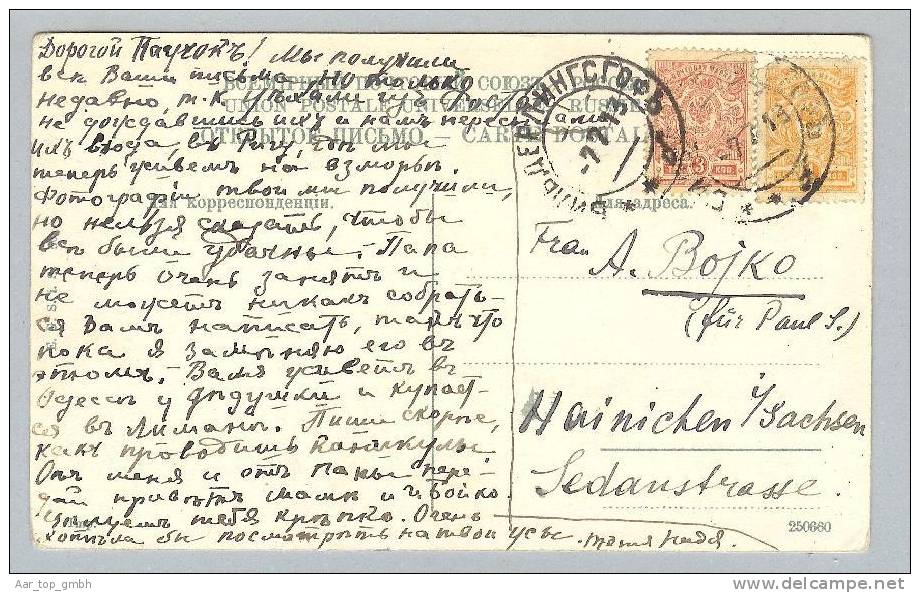 Дорогой Паучокъ! Мы получили
всѣ Ваши письма но только
недавно, т. к. уѣхали
не дождавшись ихъ и намъ переслали
ихъ сюда, въ Ригу, гдѣ мы
теперь живемъ на взморьѣ.
Фотографіи твои мы получили,
но нельзя сказать, чтобы
всѣ были удачны. Папа
теперь очень занятъ и
не можетъ никакъ собрать-
ся Вамъ написать, такъ что
пока я замѣняю его въ
этомъ. Валя живетъ въ
Одессѣ у дѣдушки и купает-
ся въ Лиманѣ. Пиши скорѣе,
какъ проводишь каникулы.
Отъ меня и отъ папы пере-
дай привѣтъ мамѣ и г. Бойко.
Цѣлуемъ тебя крѣпко. Очень
хотѣла бы посмотрѣть на твои усы. Надя.
ВСЕМІРНЫЙ ПОЧТОВЫЙ СОЮЗЪ. РОССІЯ.
UNION POSTALE UNIVERSELLE. RUSSIE.
ОТКРЫТОЕ ПИСЬМО. — CARTE POSTALE.
Для корреспонденціи.
Для адреса.
БИЛЬДЕРЛИНГСГОФЪ
-7 7 13
3
КОП
Frau
A. Bojko
(für Paul S.)
Hainichen i/Sachsen
Sedanstrasse.
250660
Aar_top_gmbh
www.delcampe.net